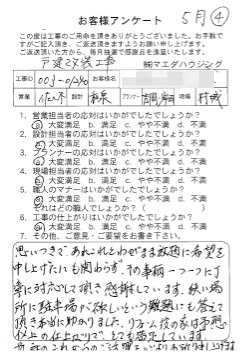 5月④
お客様アンケート
この度は工事のご用命を頂きありがとうございました。お手数で
すがご記入頂き、ご返送頂きますようお願い申し上げます。
ご返送頂いた方から、毎月抽選で感謝品を進呈いたします。
戸建改装工事 ㈱マエダハウジング
工事ID 003- お客様名
営業 設計 プランナー 現場
1. 営業担当者の応対はいかがでしたでしょうか?
a 大変満足 b. 満足 c. やや不満 d. 不満
2. 設計担当者の応対はいかがでしたでしょうか?
a 大変満足 b. 満足 c. やや不満 d. 不満
3. プランナーの応対はいかがでしたでしょうか?
a 大変満足 b. 満足 c. やや不満 d. 不満
4. 現場担当者の応対はいかがでしたでしょうか?
a 大変満足 b. 満足 c. やや不満 d. 不満
5. 職人のマナーはいかがでしたでしょうか?
a 大変満足 b. 満足 c. やや不満 d. 不満
それはどの職人でしょうか?( )
6. 工事の仕上がりはいかがでしたでしょうか?
a 大変満足 b. 満足 c. やや不満 d. 不満
7. その他、ご意見・ご要望をお書き下さい。
思いつきで、あれこれとわがまま放題に希望を
申し上げたにも関わらず、その事柄一つ一つに丁
寧に対応して頂き感謝しています。狭い場
所に駐車場が欲しいという難題にも答えて
頂き本当に助かりました。リフォーム後の家は予想
以上の仕上がりで、とても満足しています。